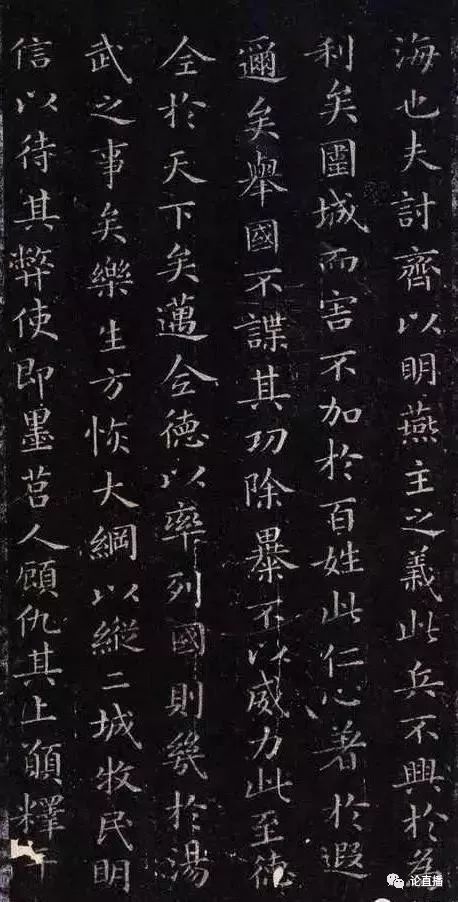 海也夫討齊以明燕主之義此兵不興於為
利矣圍城而害不加於百姓此仁心著於遐
邇矣舉國不謀其功除暴不以威力此至德
全於天下矣邁全德以率列國則幾於湯
武之事矣樂生方恢大綱以縱二城牧民明
信以待其弊使即墨莒人顧仇其上願釋干
论直播